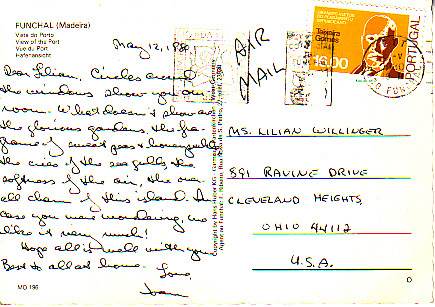 FUNCHAL (Madeira)
Vista do Porto
View of the Port
Vue du Port
Hafenansicht
May 12, 1980
AIR
MAIL
Teixeira
Gomes
16.00
PORTUGAL
Dear Lilian, Circles around
the windows show you our
room. What doesn't show are
the glorious gardens, the fra-
grance of sweet peas & honeysuckle
the cries of the sea gulls, the
softness of the air, the over
all charm of this island. In
case you were wondering, we
like it very much!
Hope all is well with you.
Best to all at home.
Love,
Joan
MS. LILIAN WILLINGER
891 RAVINE DRIVE
CLEVELAND HEIGHTS,
OHIO 44112
U.S.A.
MO 196